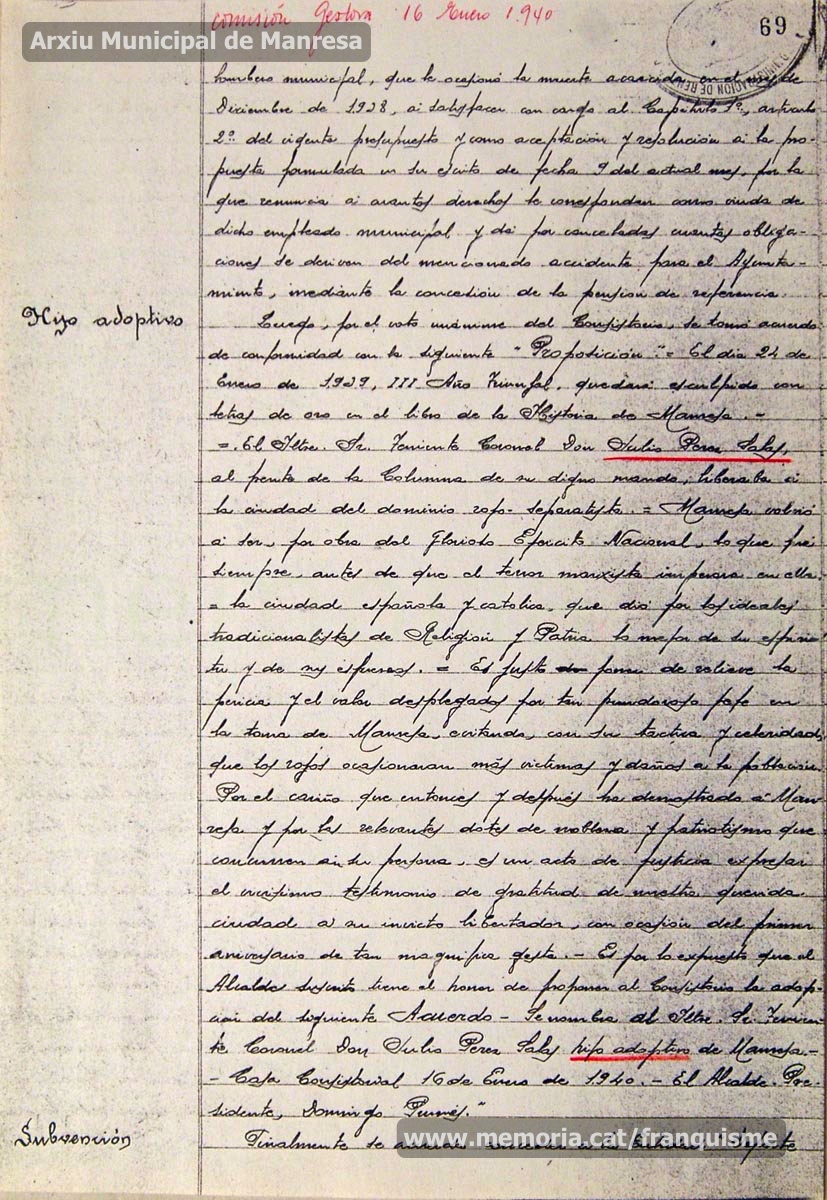 comisión Gestora 16 Enero 1.940
69
Arxiu Municipal de Manresa
bombero municipal, que le ocasionó la muerte acaecida en el mes de
Diciembre de 1938, a satisfacer con cargo al Capítulo 1º, artículo
2º del vigente presupuesto y como aceptación y resolución a la pro-
puesta formulada en su escrito de fecha 9 del actual mes, por la
que renuncia a cuantos derechos le correspondan como viuda de
dicho empleado municipal y da por canceladas cuantas obliga-
ciones se deriven del mencionado accidente para el Ayunta-
miento, mediante la concesión de la pensión de referencia.
Hijo adoptivo
Luego, por el voto unánime del Consistorio, se tomó acuerdo
de conformidad con la siguiente "Proposición".= El día 24 de
Enero de 1.939, III Año Triunfal, quedará esculpido con
letras de oro en el libro de la Historia de Manresa.-
=. El Iltre. Sr. Teniente Coronel Don Julio Perez Salas,
al frente de la Columna de su digno mando, liberaba a
la ciudad del dominio rojo-separatista.= Manresa volvió
a ser, por obra del Glorioso Ejército Nacional, lo que fué
siempre, antes de que el terror marxista imperara en ella
= la ciudad española y católica, que dió por los ideales
tradicionalistas de Religión y Patria lo mejor de su espíri-
tu y de sus esfuerzos.= Es justo poner de relieve la
pericia y el valor desplegados por tan pundoroso jefe en
la toma de Manresa, evitando, con su táctica y celeridad,
que los rojos ocasionaran más victimas y daños a la población.
Por el cariño que entonces y después ha demostrado a Man-
resa y por las relevantes dotes de nobleza y patriotismo que
concurren en su persona, es un acto de justicia expresar
el vivísimo testimonio de gratitud de nuestra querida
ciudad a su invicto libertador, con ocasión del primer
aniversario de tan magnífica gesta.- Es por lo expuesto que el
Alcalde suscrito tiene el honor de proponer al Consistorio la adop-
ción del siguiente Acuerdo - Se nombra al Iltre. Sr. Tenien-
te Coronel Don Julio Perez Salas hijo adoptivo de Manresa.-
- Casa Consistorial 16 de Enero de 1940.- El Alcalde-Pre-
sidente, Domingo
Subvención
Finalmente se
www.memoria.cat/franquisme